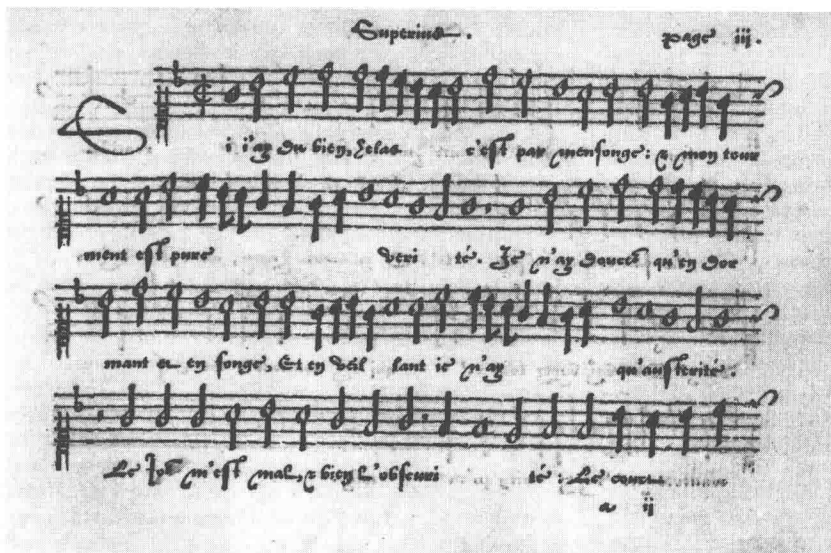 Superius. page iij.
Si i'ay du bien, helas c'est par mensonge: & mon tour
ment est pure veri té. Je n'ay qu'en dor
mant & en songe, Et en veil lant ie n'ay qu'austerité.
Le m'est mal, & bien l'obscuri té: Le
a ij